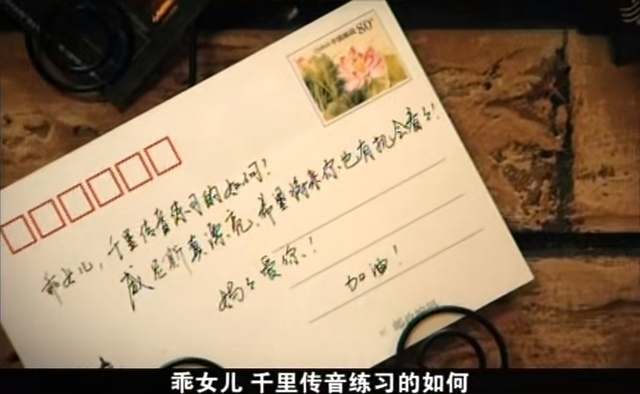 80
乖女儿，千里传音练习的如何？
威尼斯真漂亮，希望将来你也有机会看看！
妈妈爱你！
加油！
乖女儿 千里传音练习的如何